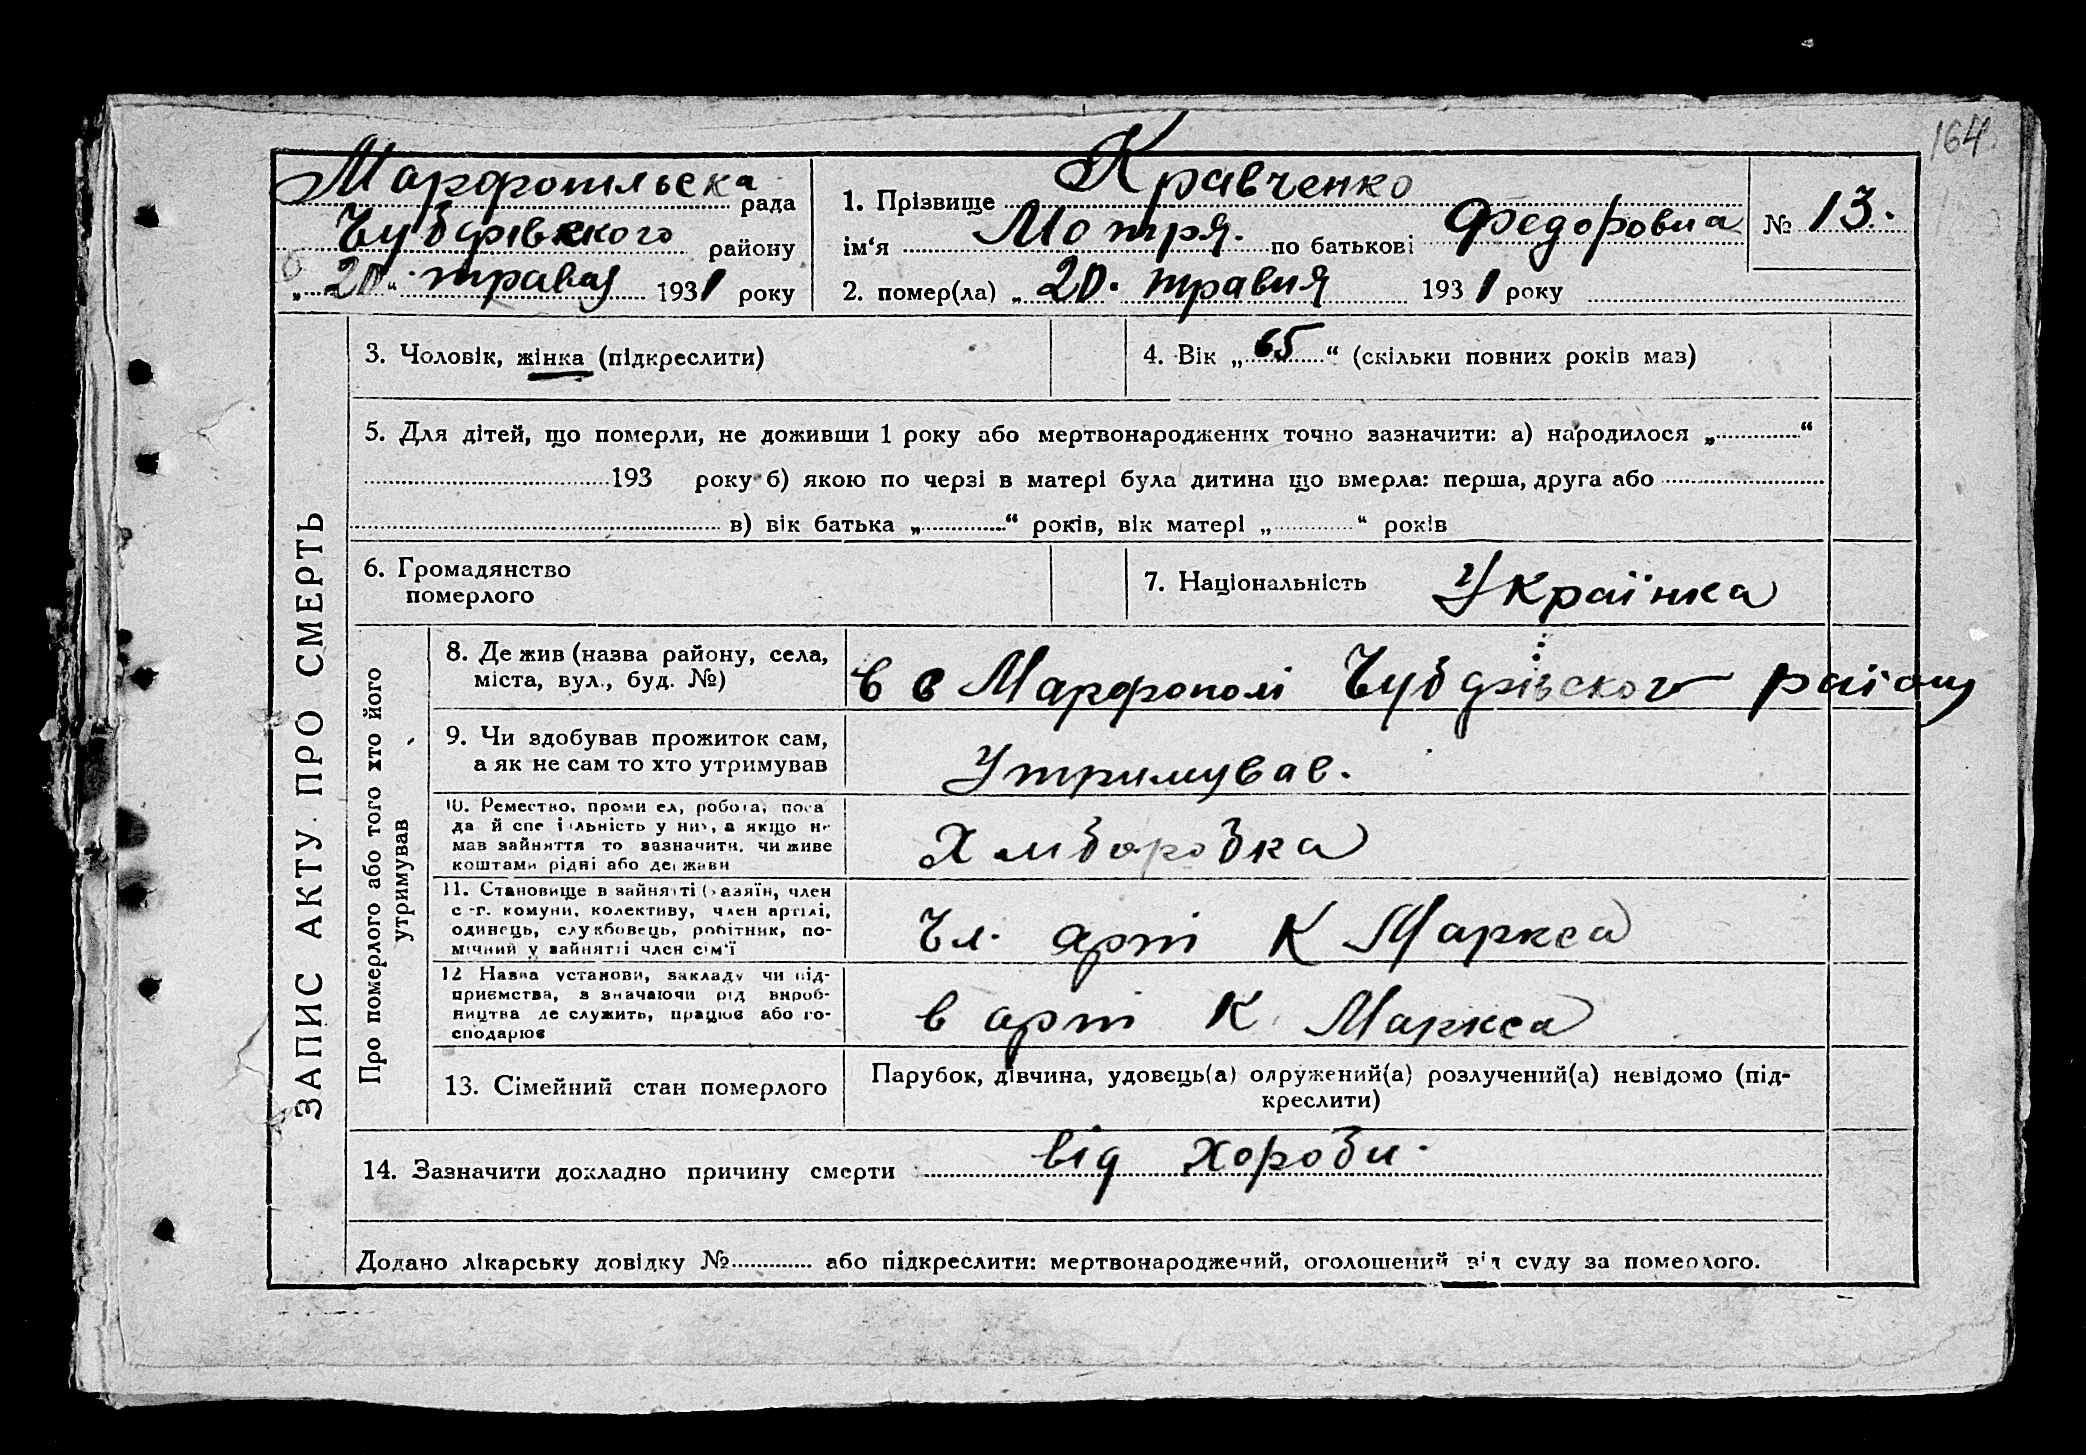 164
Марфопільска рада
Чубарівского району
„20“ травня 1931 року
1. Прізвище Кравченко
ім‘я Мотря. по батькові Федоровна
2. помер(ла) „20. травня 1931 року
№ 13.
ЗАПИС АКТУ ПРО СМЕРТЬ
3. Чоловік, жінка (підкреслити)
4. Вік „65“ (скільки повних років маз)
5. Для дітей, що померли, не доживши 1 року або мертвонароджених точно зазначити: а) народилося „ “
193 року б) якою по черзі в матері була дитина що вмерла: перша, друга або
в) вік батька „ “ років, вік матері „ “ років
6. Громадянство
померлого
7. Національність Українка
Про померлого або того хто його
утримував
8. Де жив (назва району, села,
міста, вул., буд. №)
в с Марфополі Чубарівского району
9. Чи здобував прожиток сам,
а як не сам то хто утримував
Утримував.
10. Ремество, проми ел, робота, поса
да й спе і льність у них, а якщо не
мав зайняття то зазначити, чи живе
коштами рідні або держави
Хліборобка
11. Становище в зайнятті (хазяїн, член
с.-г. комуни, колективу, член артілі,
одинець, службовець, робітник, по-
мічний у зайнятті член сім‘ї
Чл. арт К Маркса
12 Назва установи, закладу чи під-
приємства, зазначаючи рід вироб-
ництва де служить, працює або го-
сподарює
в арт К Маркса
13. Сімейний стан померлого
Парубок, дівчина, удовець(а) одружений(а) розлучений(а) невідомо (під-
креслити)
14. Зазначити докладно причину смерти від хороби.
Додано лікарську довідку № або підкреслити: мертвонароджений, оголошений від суду за померлого.